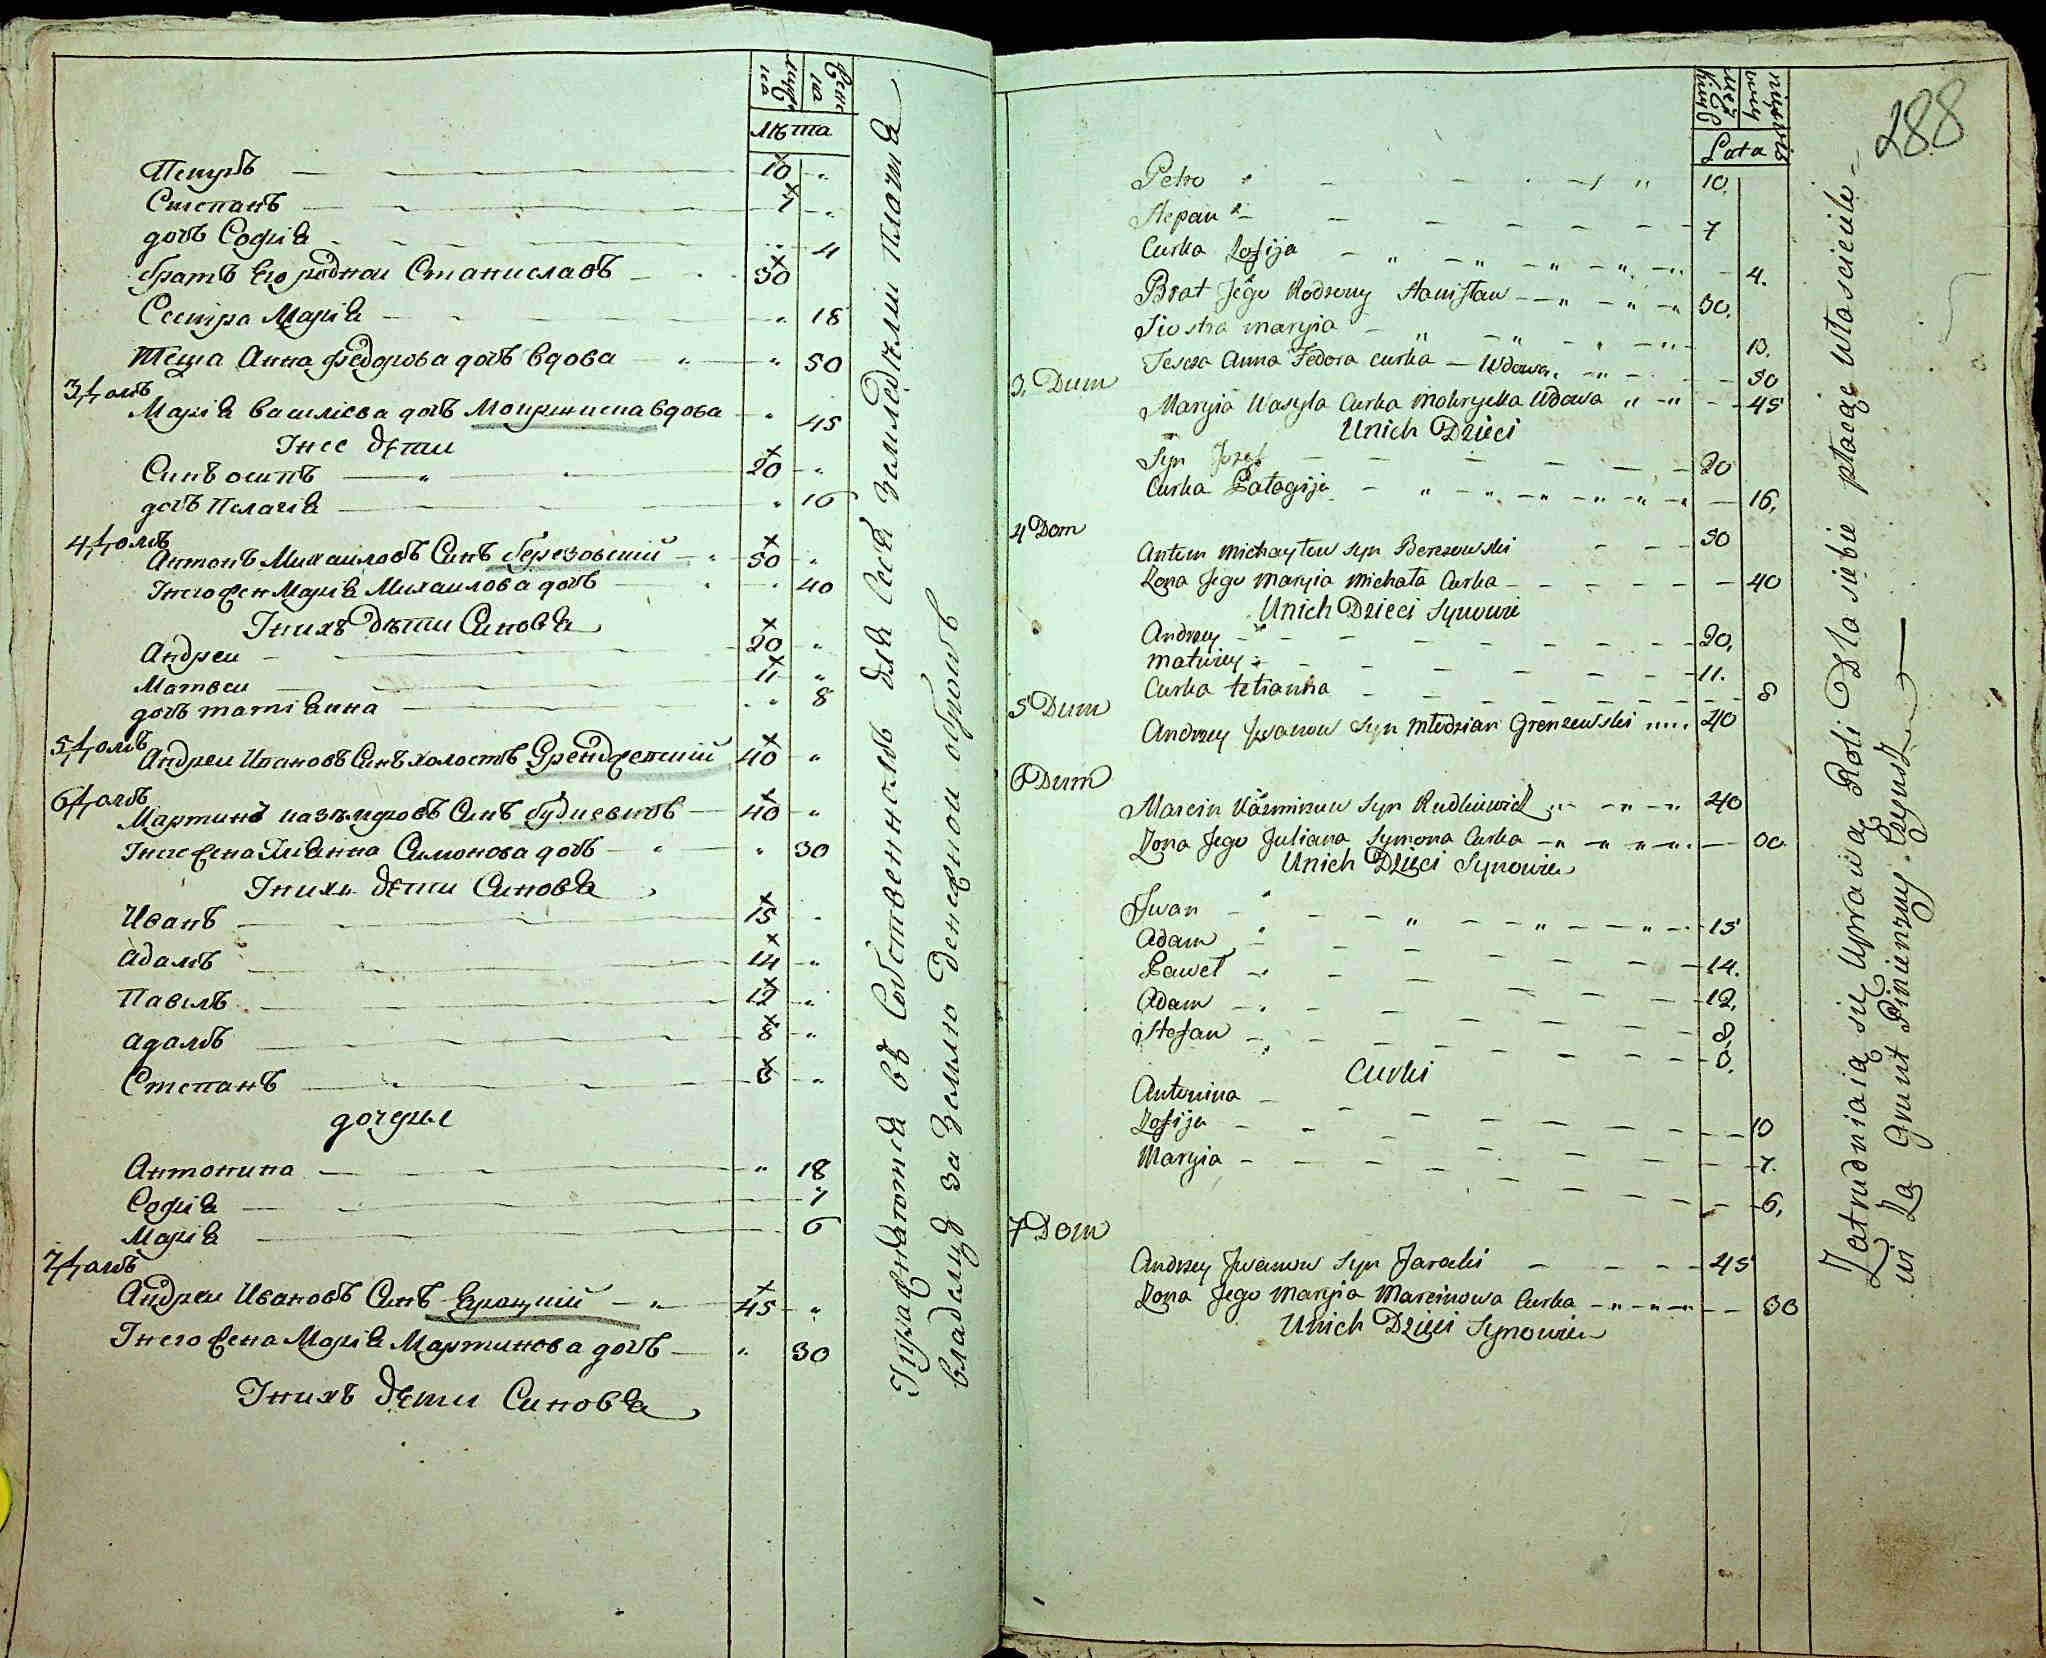 Лѣта
Петръ 10 "
Степанъ 7 "
дочь Софiя " 4
братъ Его родной Станиславъ 30
Сестра Марiя " 18
Теща Анна Федорова дочь вдова " 50
3 домъ
Марiя василiева дочь Мокрицкая вдова " 45
Унее дѣти
Синъ осипъ 20 "
дочь Пелагiя " 16
4 домъ
Антонъ Михаиловъ Синъ березовскiй 50 "
Унего жен Марiя Михаилова дочь " 40
Унихъ дѣти Синовья
Андреи 20 "
Матвеи 11 "
дочь татiянна " 8
5 домъ
Андреи Ивановъ Синъ холостъ 40 "
6 домъ
Мартинъ Синъ 40 "
Унего жена Юлiянна Симонова дочь " 30
Унихъ дѣти Синовья
Иванъ 15 "
Адамъ 14 "
Павелъ 12 "
адамъ 8 "
Степанъ 8 "
дочери
Антонина " 18
Софiя 7
Марiя 6
7 домъ
Андреи Ивановъ Синъ 45 "
Унего жена Марiя Мартинова дочь " 30
Унихъ дѣти Синовья
Упражняются въ Собственномъ для Себя земледелiи платя
владелцу за Землю денежной оброкъ
288
Lata
Petro 10.
Stepan 7
Curka Zofija 4.
Brat Jego Rodzony Stanisław 30.
Siostra maryia
Tescza Anna Fedora curka Wdowa 50
3. Dum
Maryia Wasyla Curka Mokrycka Wdowa 45
Unich Dzieci
Syn Jozef 20
Curka Pałagija 16.
4 Dom
Anton Michayłow syn Berezowski 50
Zona Jego Maryia Michała Curka 40
Unich Dzieci Synowie
Andrzey 20.
Matwiey 11.
Curka tetianna 8
5 Dum
Andrzey Jwanow Syn Młodzian Grenzewski 40
6 Dum
Marcin Kazmirow Syn Rudkiewicz 40
Zona Jego Juliana Symona Curka 30.
Unich Dzieci Synowie
Jwan 15
Adam 14.
Paweł 12.
Adam 8
Stefan 8.
Curki
Antonina 10
Zofija 7.
Maryia 6.
7 Dom
Andrzey Jwanow Syn Jaracki 45
Zona Jego Maryia Marcinowa Curka 30
Unich Dzieci Synowie
Zatrudniaią się Uprawą Roli Dla siebie płacąc właścicielo-
wi Za Grunt Pinienzny Czynsz